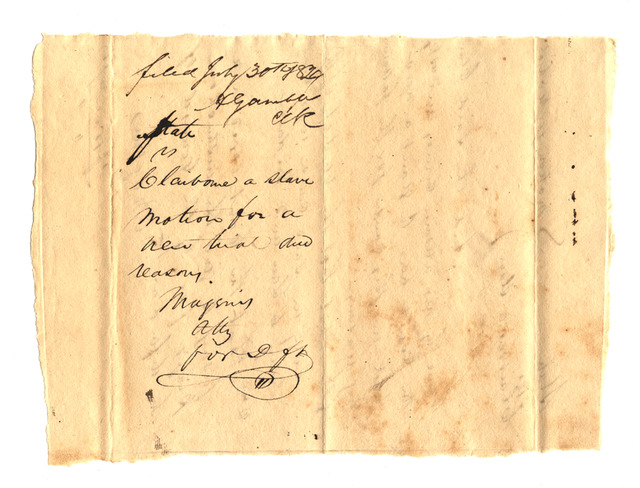 filed July 30th
A Gamble
Clk
State
vs
Claiborne a slave
motion for a
new trial and
reasons.
Magenis
Atty
for Dft